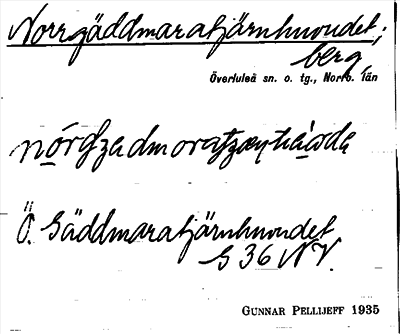 Norrgäddmaratjärnhuvudet;
berg,
Överluleå sn. o. tg., Norrb. län
Ö. Gäddmaratjärnhuvudet
G 36 NV.
GUNNAR PELLIJEFF 1935